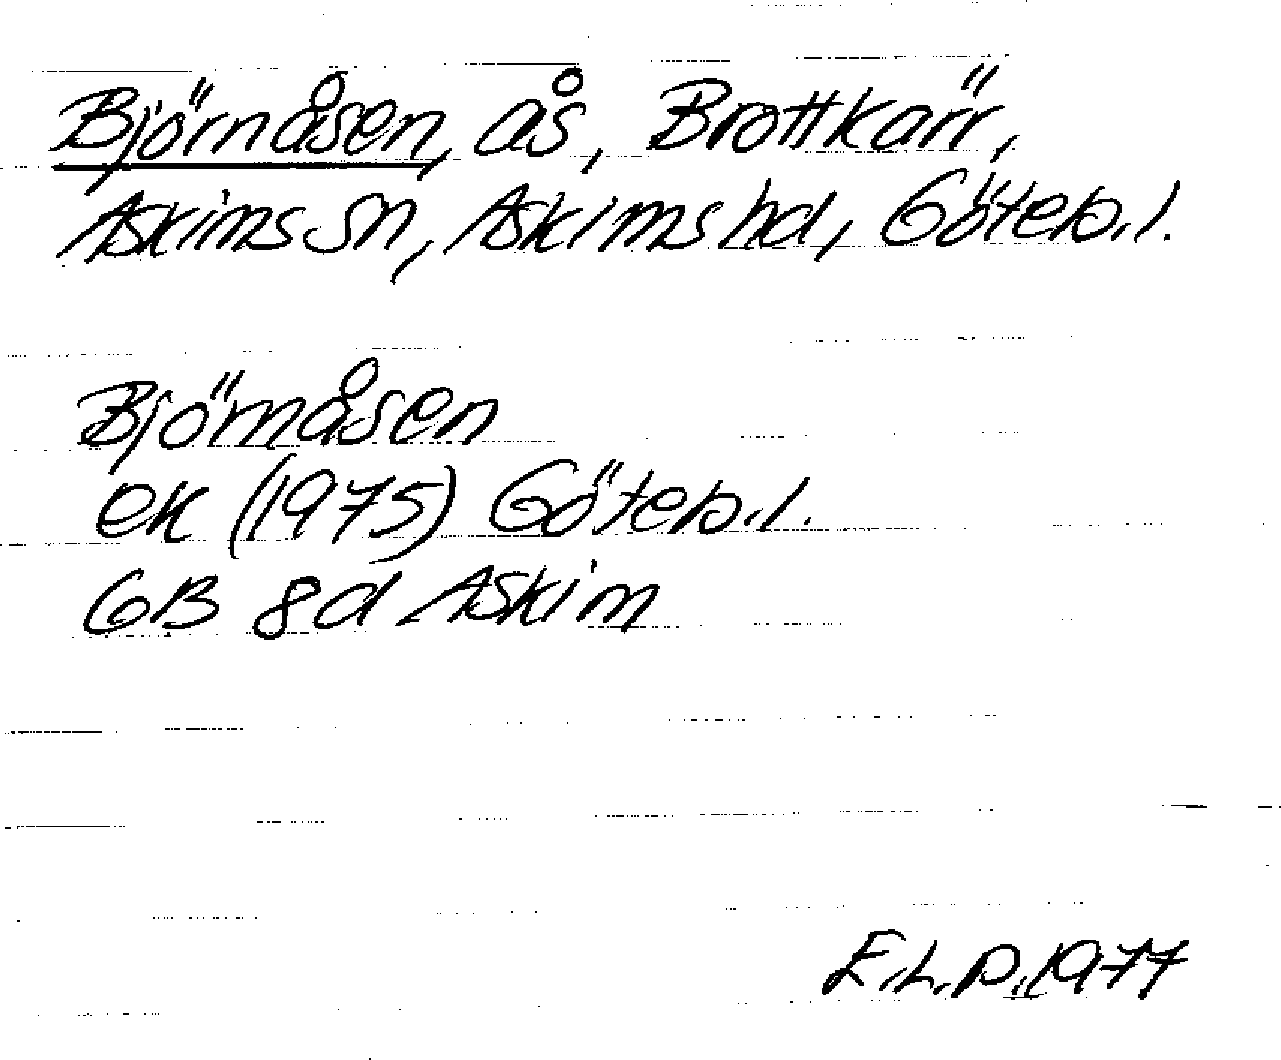 Björnåsen, ås, Brottkärr,
Askims sn, Askims hd, Göteb. l.
Björnåsen
ek (1975) Göteb. l.
6B 8d Askim
E.L.P. 1977